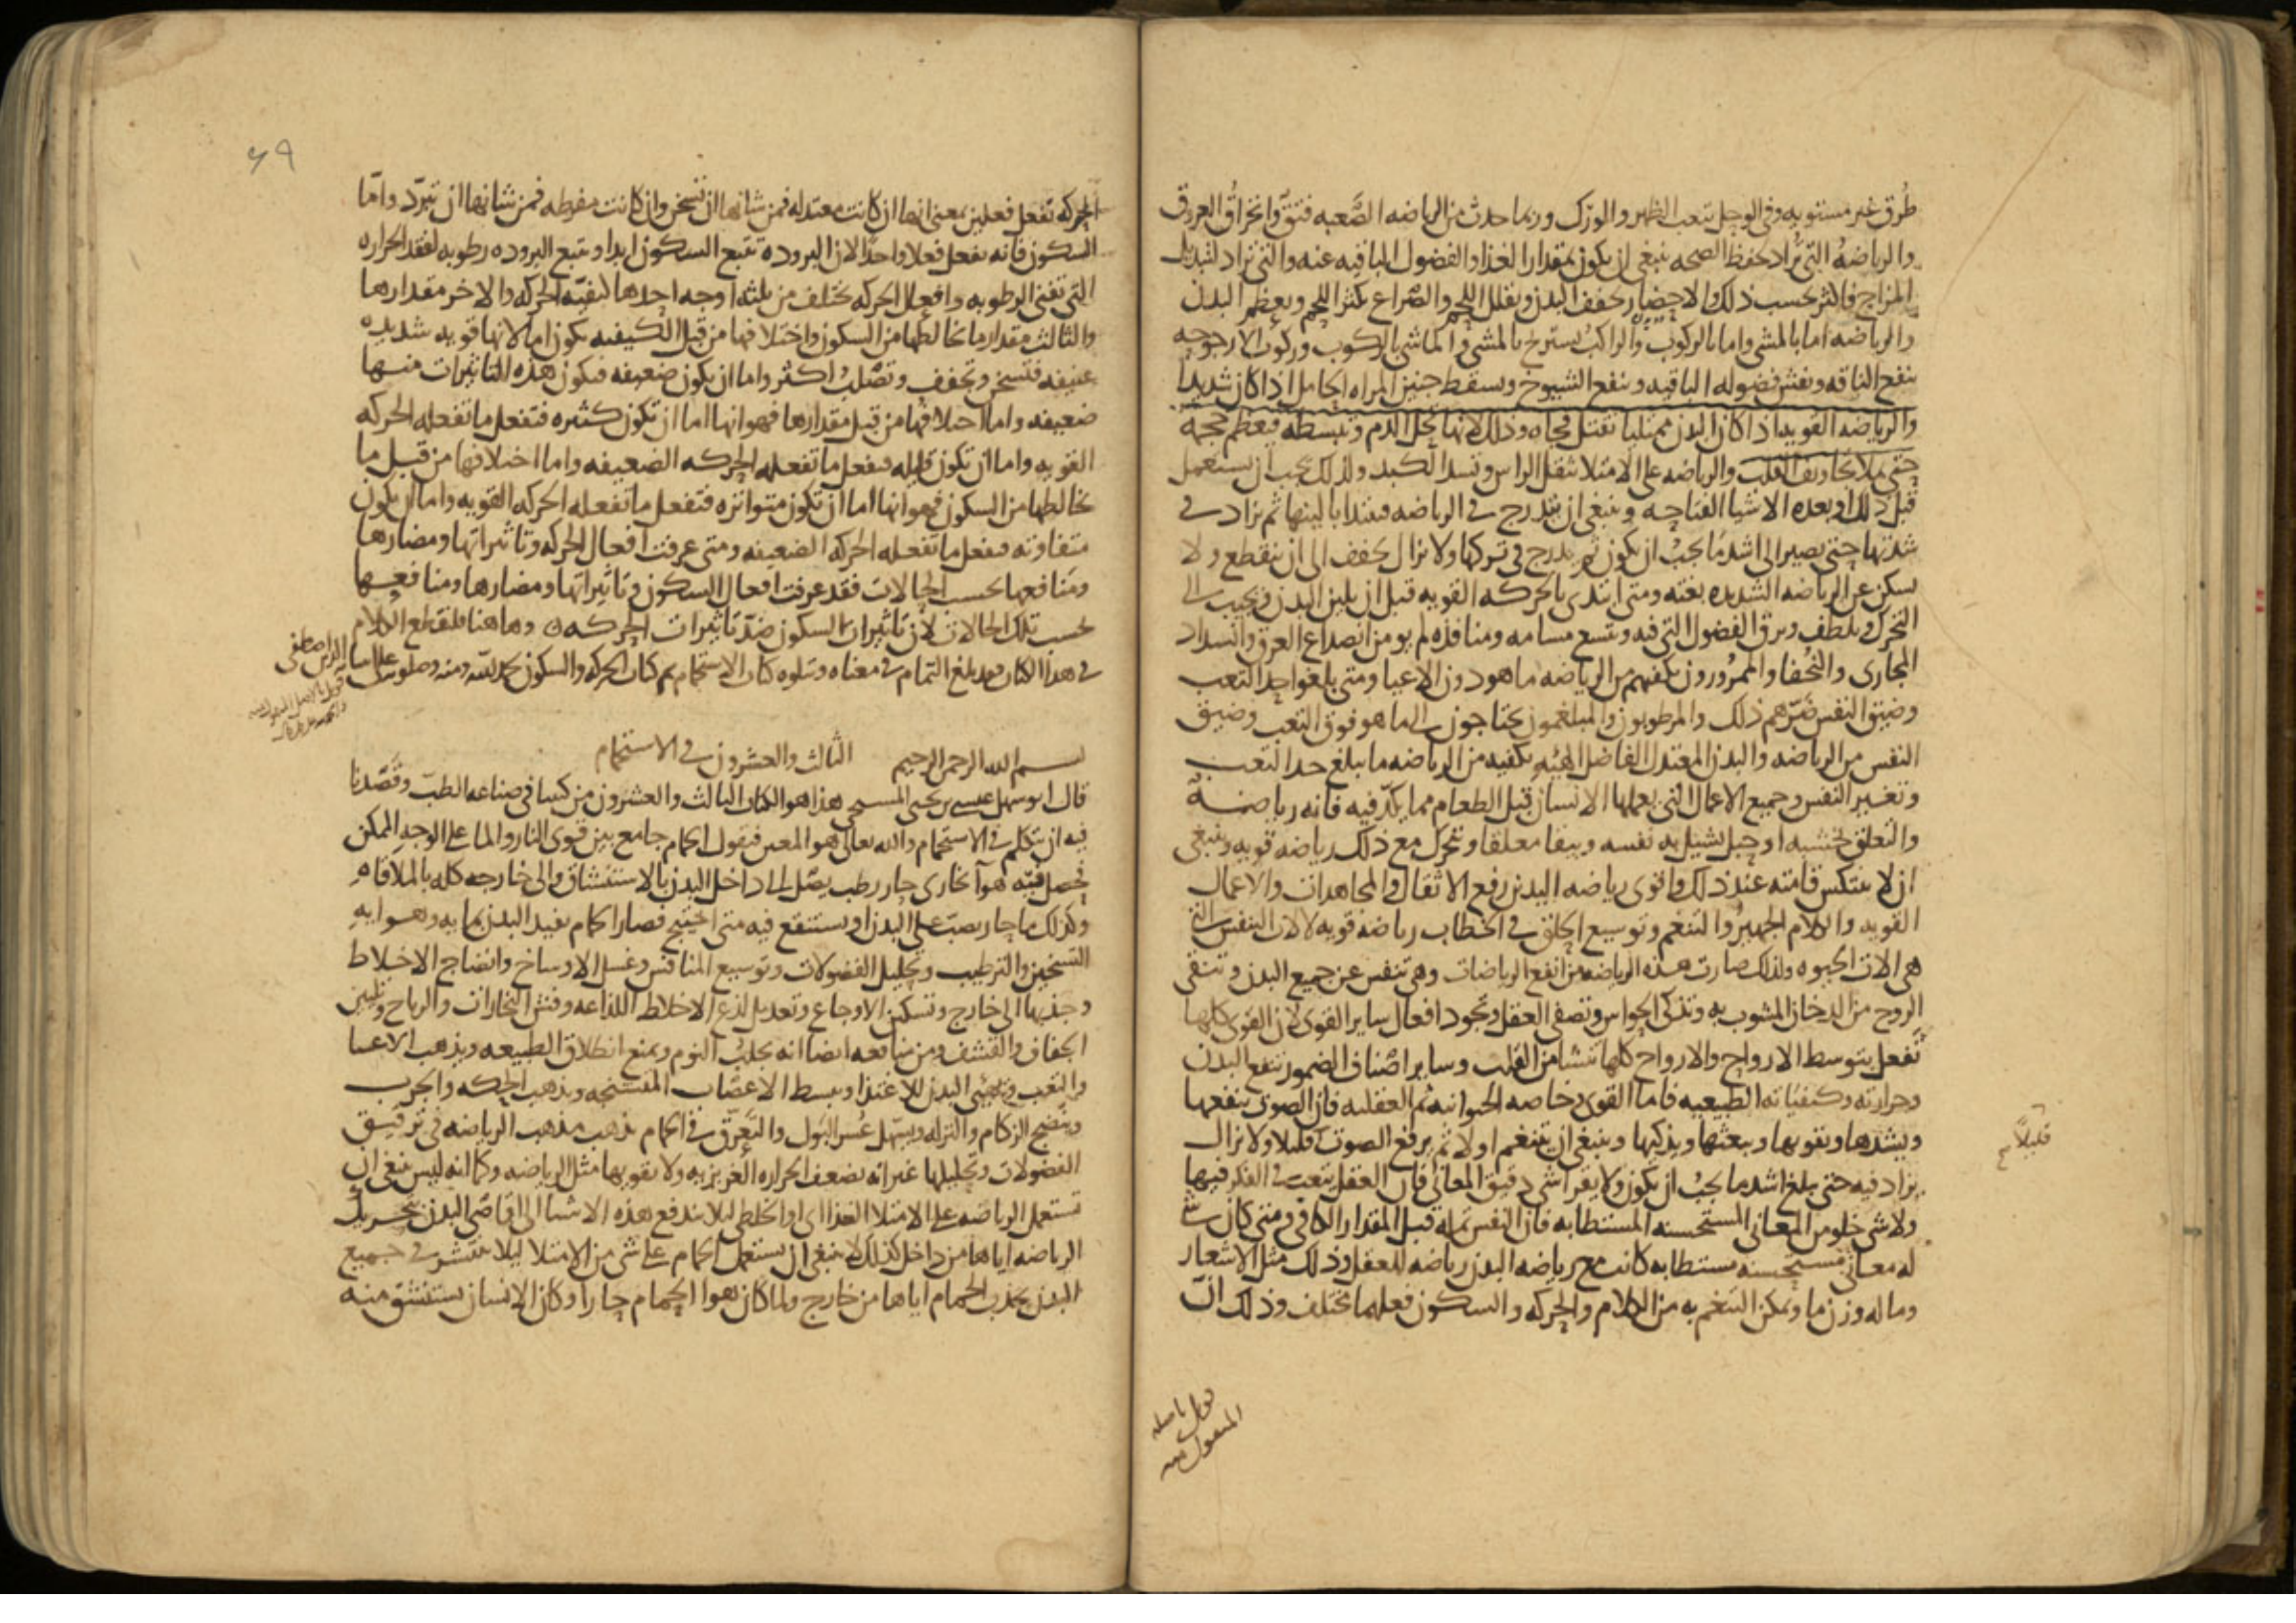 طرق غير مستويه وفى الوحل يتعب الظهر والورك وربما حدث من الرياضه الصَّعبه فتق وانخراق العروق
والرياضهُ التى يُراد بحفظ الصحه ينبغى ان يكون بمقدار الغذا والفضول الباقيه عنه والتى تراد لتبديل
المزاج فاكثر بحسب ذلك والاحضار يخفف البدن ويقلل اللحم والصراع يكثر اللحم ويعظم البدن
والرياضه اما بالمشى واما بالركوب والراكبُ يستريح بالمشى والماشى بالركوب وركوب الارجوحه
ينفع الناقه ويفش فضوله الباقيه وينفع الشيوخ ويسقط جنين المراه الحامل اذا كان شديدا
والرياضه القويه اذا كان البدن ممتليا تقتل فجاه وذلك لانها تحل الدم وتبسطه فيعظم حجمه
حتى يملا تجاويف القلب والرياضه على الامتلا تثقل الراس وتسد الكبد ولذلك يجب ان يستعمل
قبل ذلك او بعده الاشيا الفتاحه وينبغى ان يتدرج فى الرياضه فيبتدا بالينها ثم يزاد فى
شدتها حتى يصير الى اشد ما يجبُ ان يكون ثم يدرج فى تركها ولا يزال يخفف الى ان ينقطع ولا
يسكن عن الرياضه الشديده بغته ومتى ابتدى بالحركه القويه قبل ان يلين البدن ويجيب الى
التحرك ويلطف ويرق الفضول التى فيه ويتسع مسامه ومنافذه لم يومن انصداع العرق وانسداد
المجارى والنُحفا والممرورون يكفيهم من الرياضه ما هو دون الاعيا ومتى بلغوا حد التعب
وضيق النفس ضرّهم ذلك والمرطوبون والمبلغمون يحتاجون الى ما هو فوق التعب وضيق
النفس من الرياضه والبدن المعتدل الفاضل الهيُه يكفيه من الرياضه ما يبلغ حد التعب
وتغير النفس وجميع الاعمال التى يعملها الانسان قبل الطعام مما يكدّ فيه فانه رياضة
والتعلق بخشبه او حبل يشيل به نفسه ويبقا معلقا وتحرك مع ذلك رياضه قويه وينبغى
ان لا ينتكس قامته عند ذلك واقوى رياضه اليدين رفع الاثقال والمجاهدات والاعمال
القويه والكلام الجهيرُ والتنغم وتوسيع الحلق فى الخطاب رياضه قويه لالات التنفس التى
هى الات الحيوه ولذلك صارت هذه الرياضه من انفع الرياضات وهى تنفس عن جميع البدن وتنقى
الروح من الدخان المشوب به وتذكى الحواس وتصفى العقل وتجود افعال ساير القوى لان القوى كلها
تفعل بتوسط الارواح والارواح كلها تنشا من القلب وساير اصناف الضمور تنفع البدن
وحرارته وكيفياته الطبيعيه فاما القوى وخاصه الحيوانيه ثم العقليه فان الصوت ينفعها
ويشدها ويقويها ويبعثها ويذكيها وينبغى ان يتنغم اولا ثم يرفع الصوت قليلا ولا يزال
قليلاً
يزاد فيه حتى يبلغ اشد ما يجبُ ان يكون ولا يقرا شى دقيق المعانى فان العقل يتعب فى الفكر فيها
ولا شى خلو من المعانى المستحسنه المستطابه فان النفس تمله قبل المقدار الكافى ومتى كان شى
له معانى مستحسنه مستطابه كانت مع رياضه البدن رياضه للعقل وذلك مثل الاشعار
وما له وزن ما ويمكن التنغم به من الكلام والحركه والسكون فعلهما مختلف وذلك انّ
قوبل باصله
المنقول منه
٦٩
الحركه تفعل فعلين بمعنى انها ان كانت معتدله فمن شانها ان تسخن وان كانت مفرطه فمن شانها ان تبرّد وامّا
السكون فانه يفعل فعلا واحدًا لان البروده تتبع السكون ابدا ويتبع البروده رطوبه لفقد الحراره
التى تفنى الرطوبه وافعال الحركه تختلف من ثلثه اوجه احدها كيفيّه الحركه والاخر مقدارها
والثالث مقدار ما يخالطها من السكون واختلافها من قبل الكيفيه يكون اما لانها قويه شديده
عنيفه فتسخن وتجفف وتصّلبُ اكثر واما ان يكون ضعيفه فيكون هذه التاثيرات منها
ضعيفه واما اختلافها من قبل مقدارها فهو انها اما ان تكون كثيره فتفعل ما تفعله الحركه
القويه واما ان تكون قليله فتفعل ما تفعله الحركه الضعيفه واما اختلافها من قبل ما
يخالطها من السكون فهو انها اما ان تكون متواتره فتفعل ما تفعله الحركه القويه واما ان يكون
متفاوته فتفعل ما تفعله الحركه الضعيفه ومتى عرفت افعال الحركه وتاثيراتها ومضارها
ومنافعها بحسب الحالات فقد عرفت افعال السكون وتاثيراتها ومضارها ومنافعها
بحسب تلك الحالات لان تاثيرات السكون ضدّ تاثيرات الحركه وهاهنا فلنقطع الكلام
فى هذا الكتاب فقد بلغ التمام فى معناه ويتلوه كتاب الاستحمام تم كتاب الحركه والسكون بحمد لله ومنه وصلوته على
بسم الله الرحمن الرحيم الثالث والعشرون فى الاستحمام
قال ابو سهل عيسى بن يحيى المسيحى هذا هو الكتاب الثالث والعشرون من كتبنا فى صناعه الطبّ وقَصْدنا
فيه ان نتكلم فى الاستحمام والله تعالى هو المعين فنقول الحمام جامع بين قوى النار والما على الوجه الممكن
يحصل فيه هوآ بخارى حار رطب يصل الى داخل البدن بالاستنشاق والى خارجه كله بالملاقاه
وكذلك ما حار يصبّ على البدن او يستنقع فيه متى احتيج فصار الحمام يفيد البدن بمايه وهوايه
التسخين والترطيب وتحليل الفضولات وتوسيع المنافس وغسل الاوساخ وانضاج الاخلاط
وجذبها الى خارج وتسكين الاوجاع وتعديل لذع الاخلاط اللذاعه وفش البخارات والرياح وتليين
الجفاف والقشف ومن منافعه ايضا انه يجلبُ النوم ويمنع انطلاق الطبيعه ويذهب الاعيا
والتعب ويهيئى البدن للاغتذا ويبسط الاعصاب المتشنجه ويذهب الحكه والجرب
وينضج الزكام والنزله ويسهل عُسر البول والتعرّق فى الحمام يذهب مذهب الرياضه فى ترقيق
الفضولات وتحليلها غير انه يضعف الحراره الغريزيه ولا يقويها مثل الرياضه وكما انه ليس ينبغى ان
تستعمل الرياضه على الامتلا الغذااى او الخلطى ليلا يندفع هذه الاشيا الى اقاصى البدن بتحريك
الرياضه اياها من داخل كذلك لا ينبغى ان يستعمل الحمام على شى من الامتلا ليلا ينتشر فى جميع
البدن بجذب الحمام اياها من خارج ولما كان هوا الحمام حارا وكان الانسان يستنشق منه